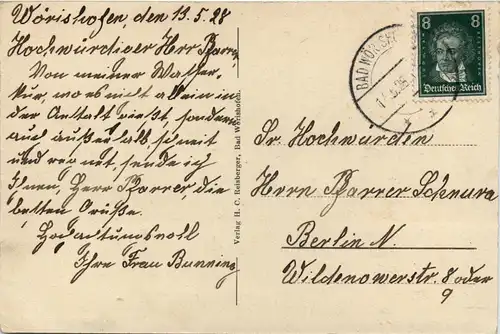 Wörishofen den 13.5.28
Hochwürdiger Herr Pfarrer
Von meiner Wasser-
kur, wo es nicht allein in
der Anstalt gießt, sondern
auch außerhalb schneit
und regnet, sende ich
Ihnen, Herr Pfarrer, die
besten Grüße.
Hochachtungsvoll
Ihre Frau Bunning
Verlag H. C. Reisberger, Bad Wörishofen.
BAD WÖRISH
8 8
Deutsches Reich
Sr. Hochwürden
Herrn Pfarrer Schnura
Berlin N.
Wildenowerstr. 8 oder
9